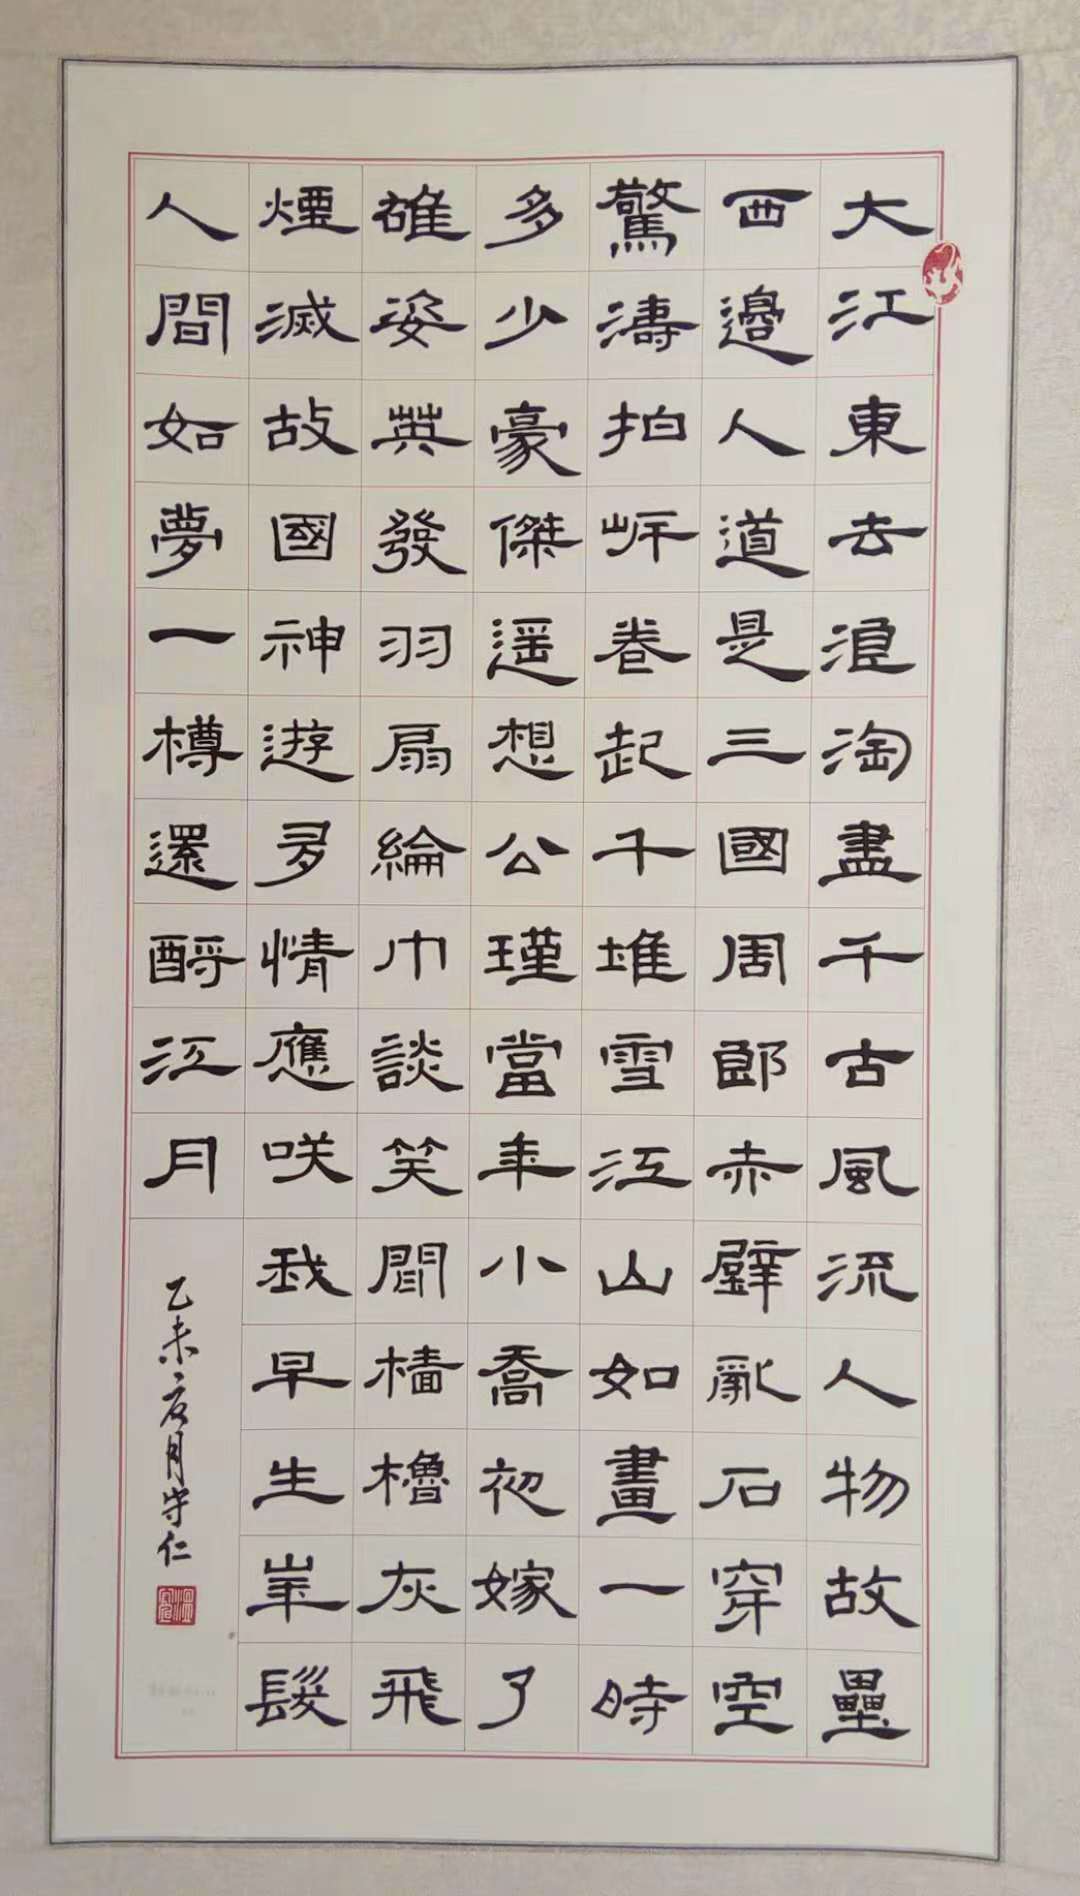 大江東去浪淘盡千古風流人物故壘
西邊人道是三國周郎赤壁亂石穿空
驚濤拍岍卷起千堆雪江山如畫一時
多少豪傑遥想公瑾當年小喬初嫁了
雄姿英發羽扇綸巾談笑間檣櫓灰飛
煙滅故國神遊多情應咲我早生華髮
人間如夢一樽還酹江月
乙未 月守仁